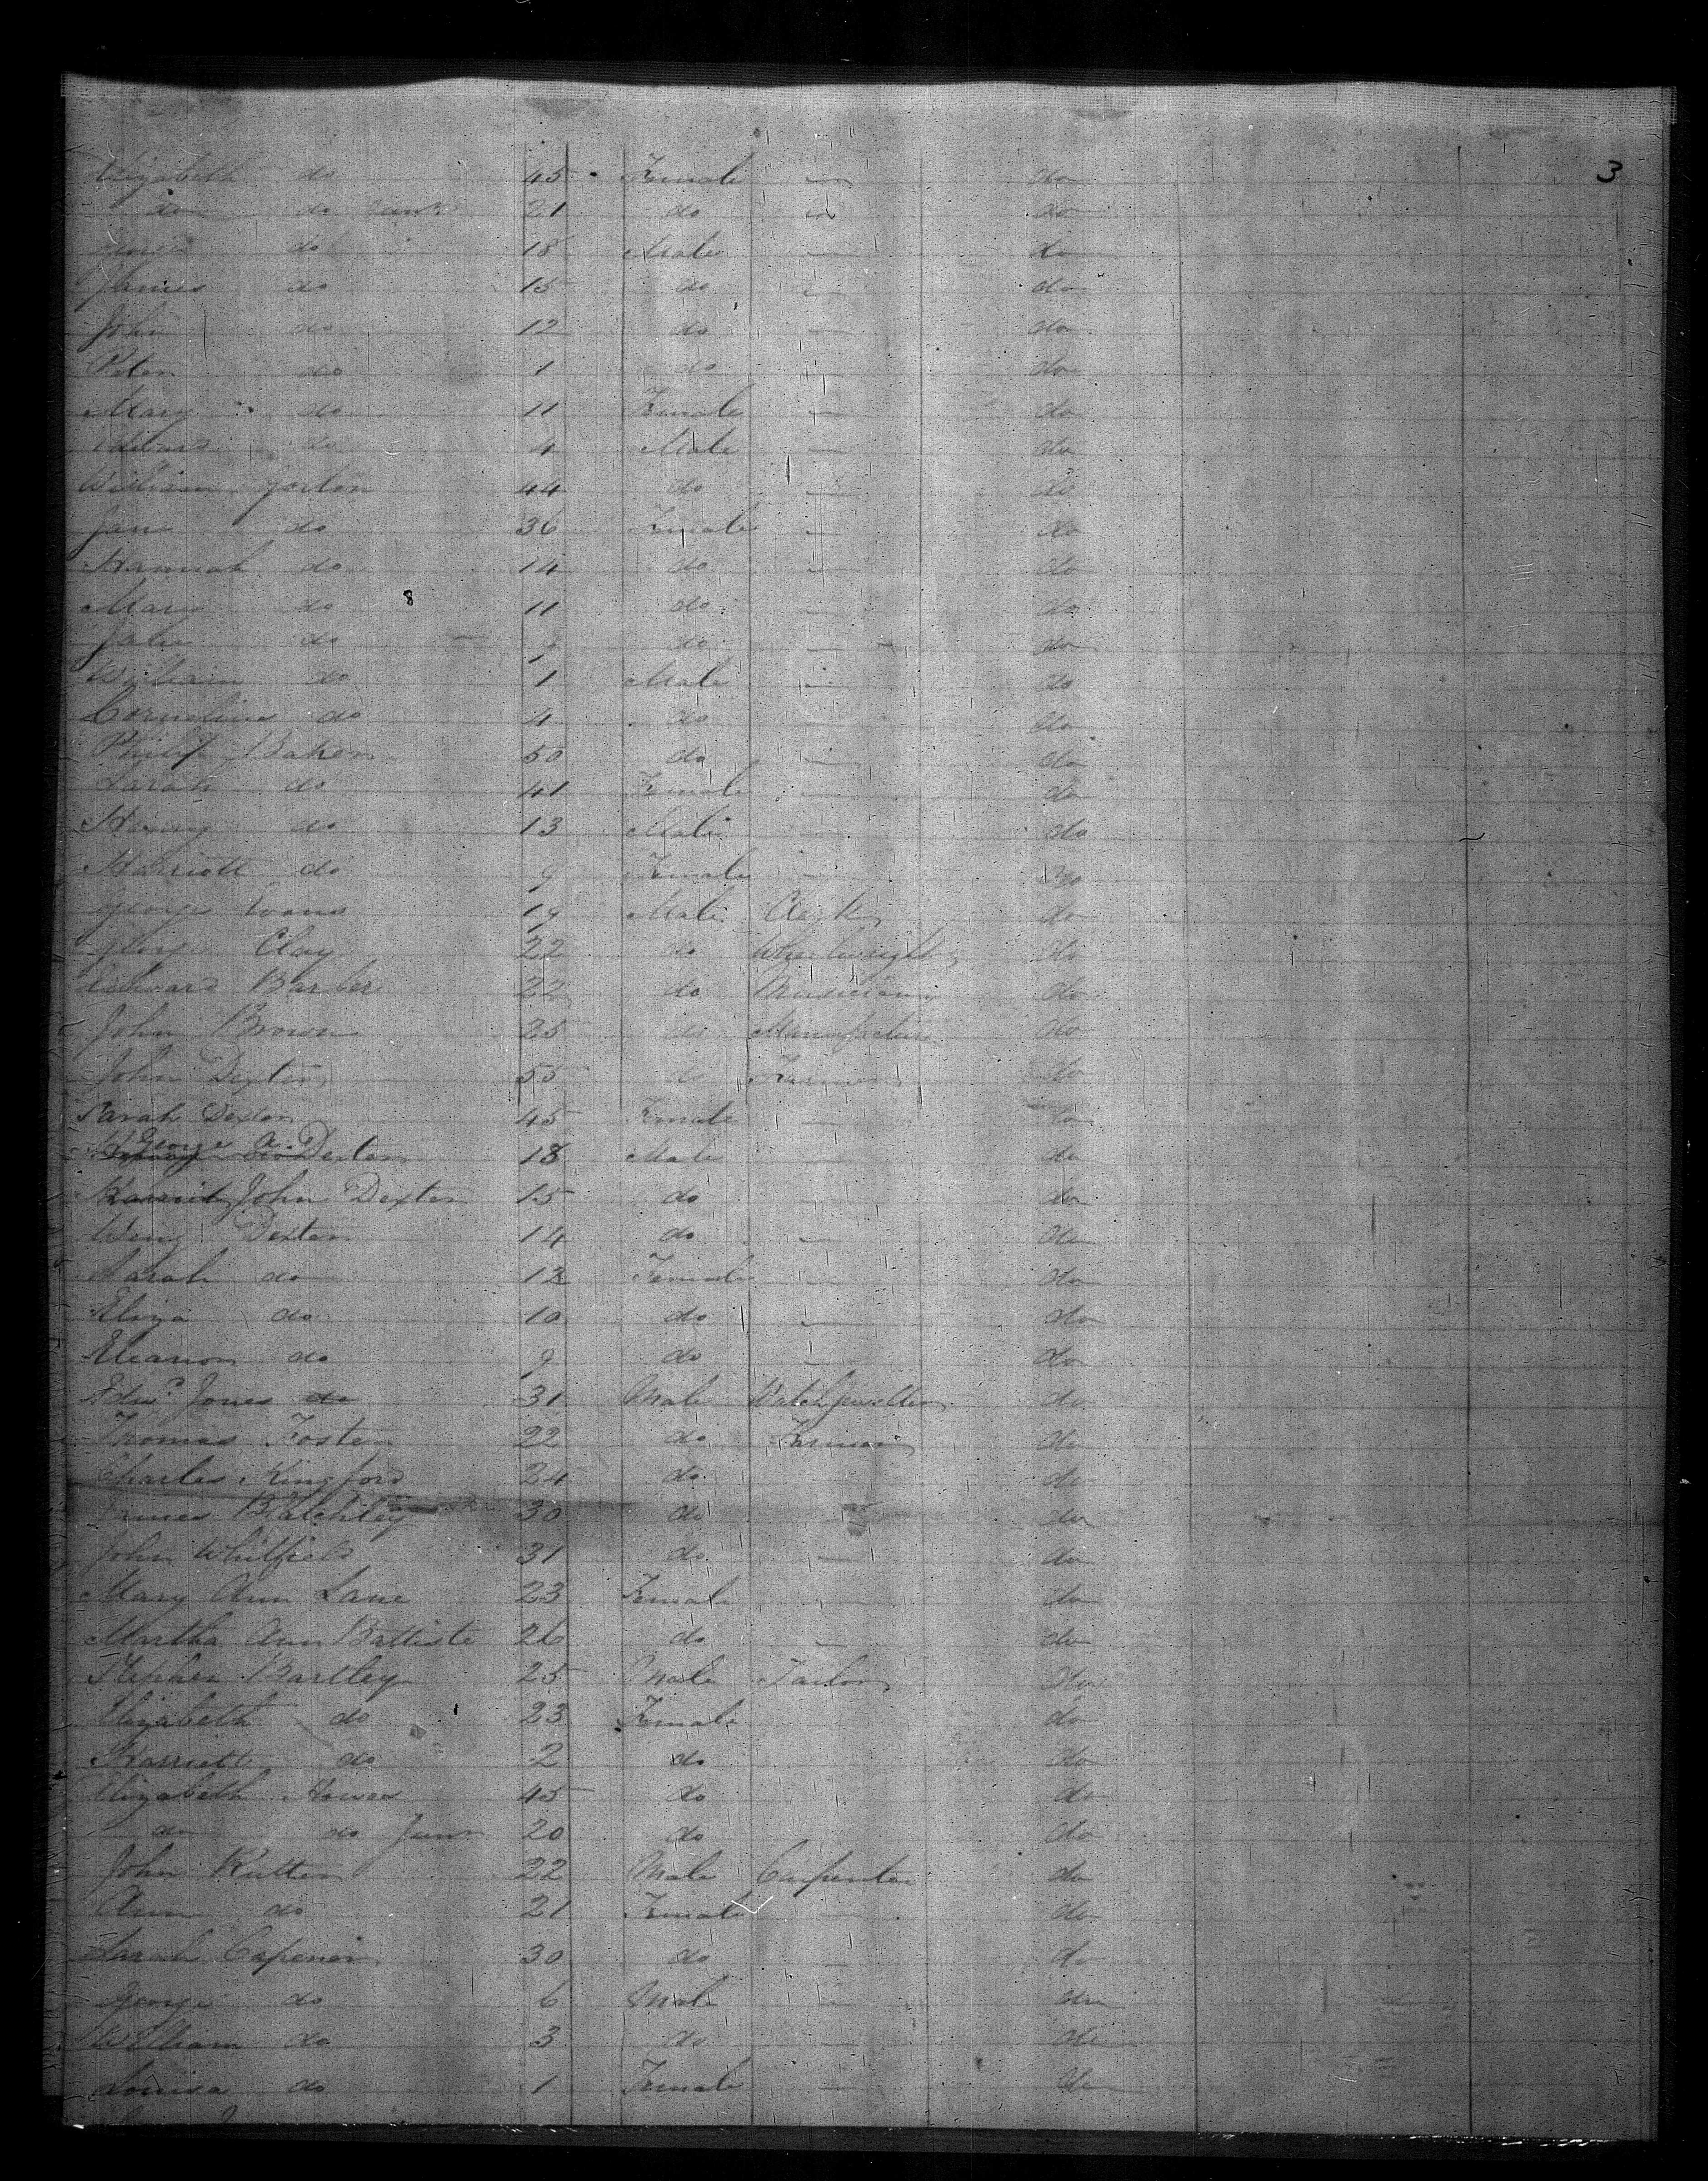 3
Elizabeth do 45 Female — do
do do Junr 21 do do
George do 18 Male — do
James do 15 do — do
John do 12 do — do
Peter do 1 do — do
Mary do 11 Female — do
Edward do 4 Male — do
William Gorton 44 do — do
Jane do 36 Female — do
Hannah do 14 do — do
Mary do 8 11 do — do
do do — do
William do 1 Male — do
Cornelius do 4 do — do
Philip Baker 50 do — do
Sarah do 41 Female — do
Henry do 13 Male do
Harriott do 9 Female — do
George Evans 19 Male Clerk do
George Clay 22 do Wheelwright do
Edward Barber 22 do Musician do
John Brown 25 do Manufacturer do
John Dexter 55 do Farmer do
Sarah Dexter 45 Female — do
George A. Dexter 18 Male — do
Harriet John Dexter 15 do — do
Dexter 14 do — do
Sarah do 12 Female — do
Eliza do 10 do — do
Eleanor do 9 do — do
Edwd Jones do 31 Male Watch Jeweller do
Thomas Foster 22 do Farmer do
Charles Kingford 24 do — do
James Blatchley 30 do — do
John Whitfield 31 do — do
Mary Ann Lane 23 Female do
Martha Ann Battiste 26 do — do
Stephen Bartley 25 Male Tailor do
Elizabeth do 23 Female do
Harriett do 2 do do
Elizabeth Howes 45 do do
do do Junr 20 do do
John Rutter 22 Male Carpenter do
Ann do 21 Female — do
Sarah Capener 30 do — do
George do 6 Male — do
William do 3 do — do
Louisa do 1 Female — do